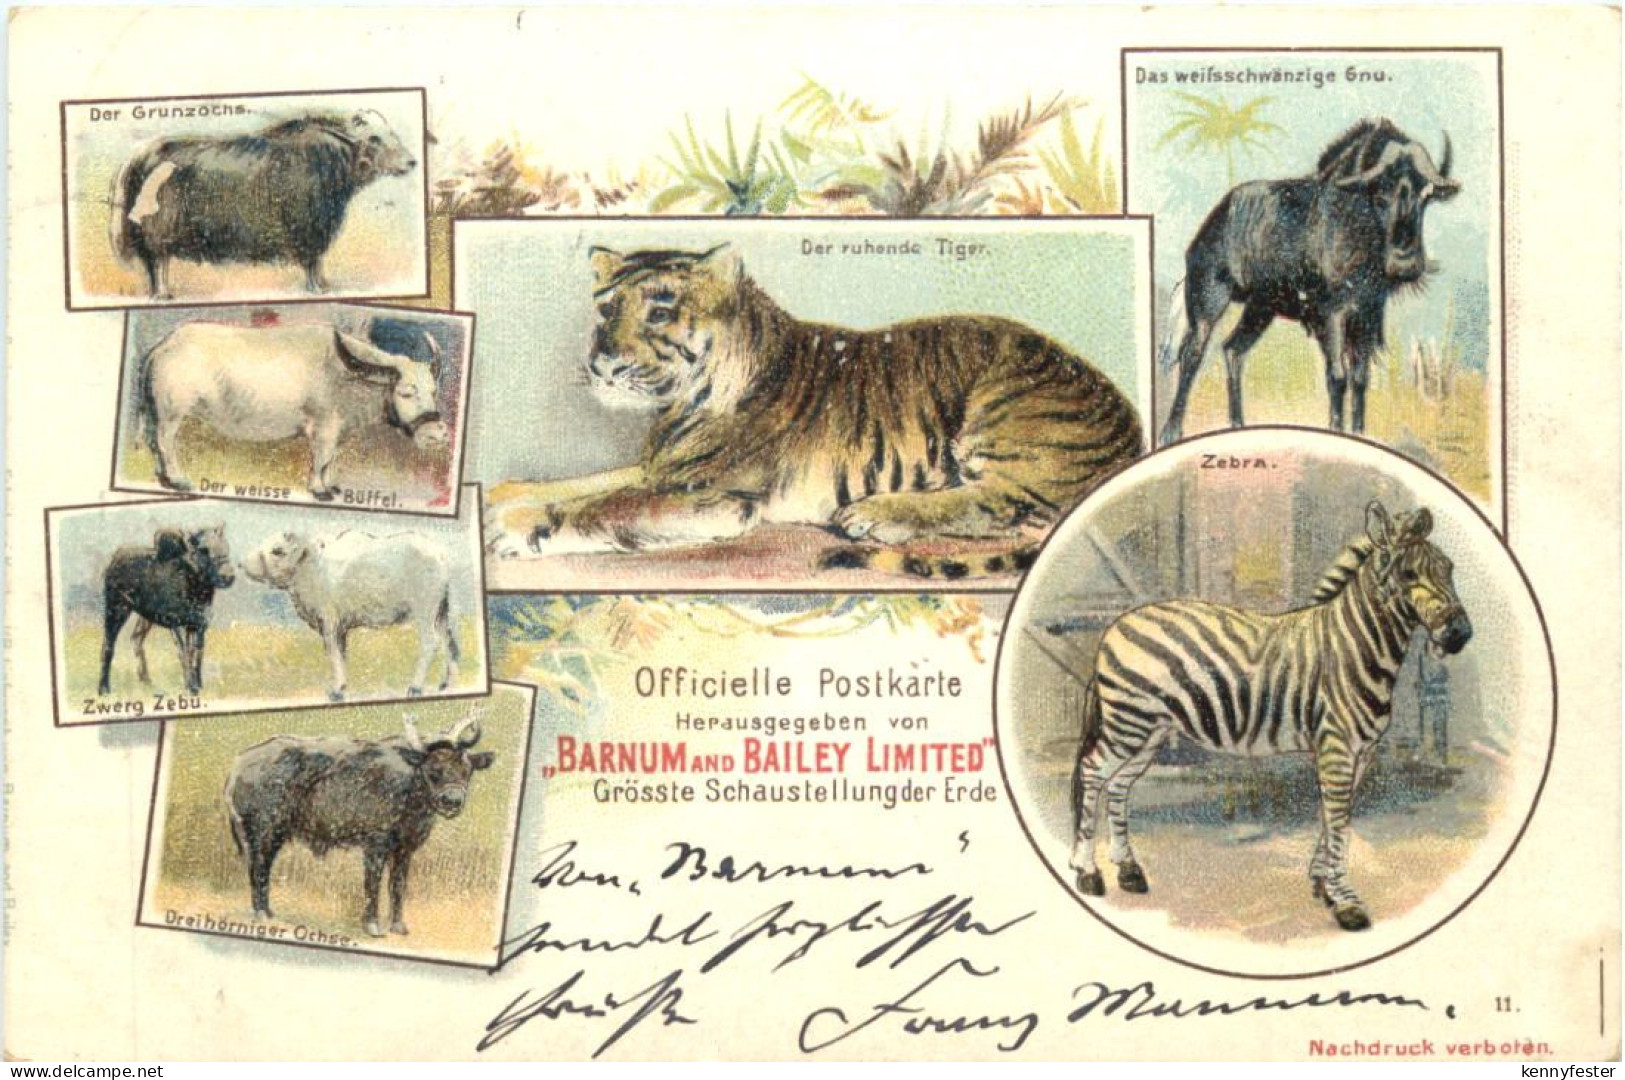 Der Grunzochs.
Das weifsschwänzige Gnu.
Der ruhende Tiger.
Der weisse Büffel.
Zebra.
Zwerg Zebu.
Dreihörniger Ochse.
Officielle Postkarte
Herausgegeben von
„BARNUM AND BAILEY LIMITED"
Grösste Schaustellung der Erde
Von „Barnum"
sendet herzlichsten
Grüße Franz
11.
Nachdruck verboten.
delcampe.net
kennyfester